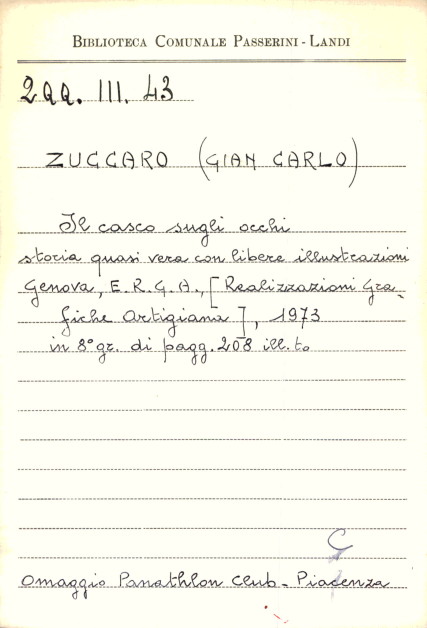 BIBLIOTECA COMUNALE PASSERINI - LANDI
2QQ. III. 43
ZUCCARO (GIAN CARLO)
Il casco sugli occhi
storia quasi vera con libere illustrazioni
Genova, E.R.G.A., [Realizzazioni Gra-
fiche Artigiana], 1973
in 8° gr. di pagg. 208 ill.to
G
Omaggio Panathlon Club - Piacenza